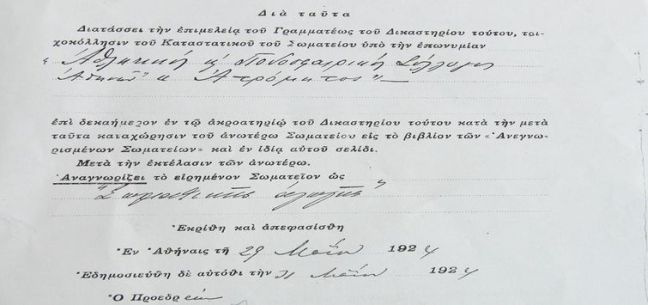 Διὰ ταῦτα
Διατάσσει τὴν ἐπιμελείᾳ τοῦ Γραμματέως τοῦ Δικαστηρίου τούτου, τοι-
χοκόλλησιν τοῦ Καταστατικοῦ τοῦ Σωματείου ὑπὸ τὴν ἐπωνυμίαν
«Ἀθλητικὸς κ Ποδοσφαιρικὸς Σύλλογος
Ἀθηνῶν ὁ Ἀτρόμητος»
ἐπὶ δεκαήμερον ἐν τῷ ἀκροατηρίῳ τοῦ Δικαστηρίου τούτου κατὰ τὴν μετὰ
ταῦτα καταχώρησιν τοῦ ἀνωτέρω Σωματείου εἰς τὸ βιβλίον τῶν «Ἀνεγνω-
ρισμένων Σωματείων» καὶ ἐν ἰδίᾳ αὐτοῦ σελίδι.
Μετὰ τὴν ἐκτέλεσιν τῶν ἀνωτέρω.
Ἀναγνωρίζει τὸ εἰρημένον Σωματεῖον ὡς
Ἐκρίθη καὶ ἀπεφασίσθη
Ἐν Ἀθήναις τῇ 29 Μαΐου 1924
Ἐδημοσιεύθη δὲ αὐτόθι τὴν 31 Μαΐου 1924
Ὁ Πρόεδρ